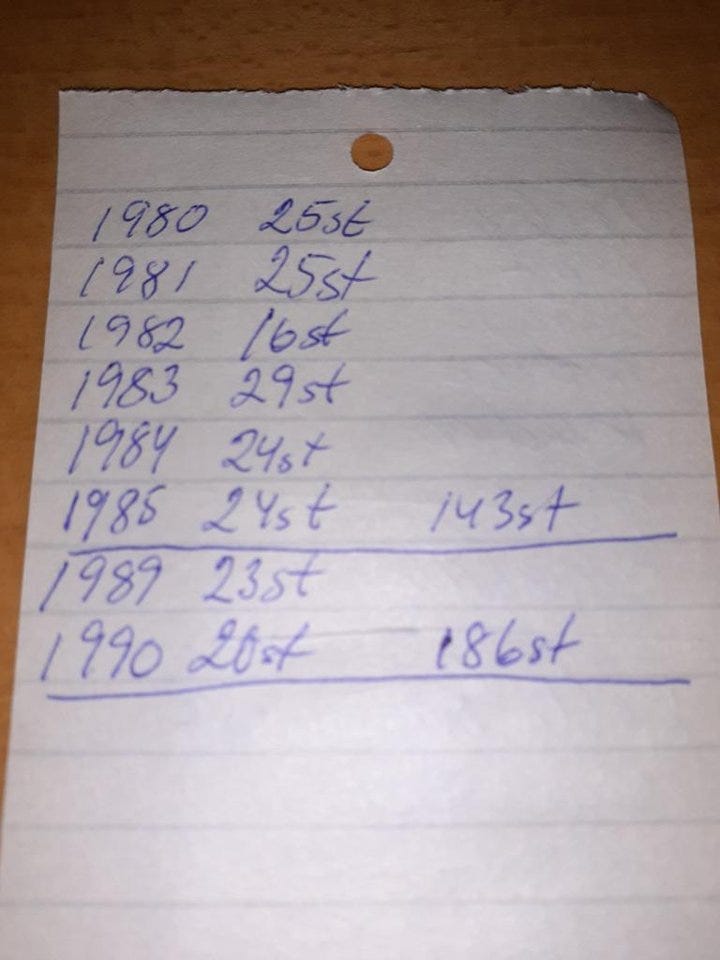 1980 25st
1981 25st
1982 16st
1983 29st
1984 24st
1985 24st 143st
1989 23st
1990 20st 186st